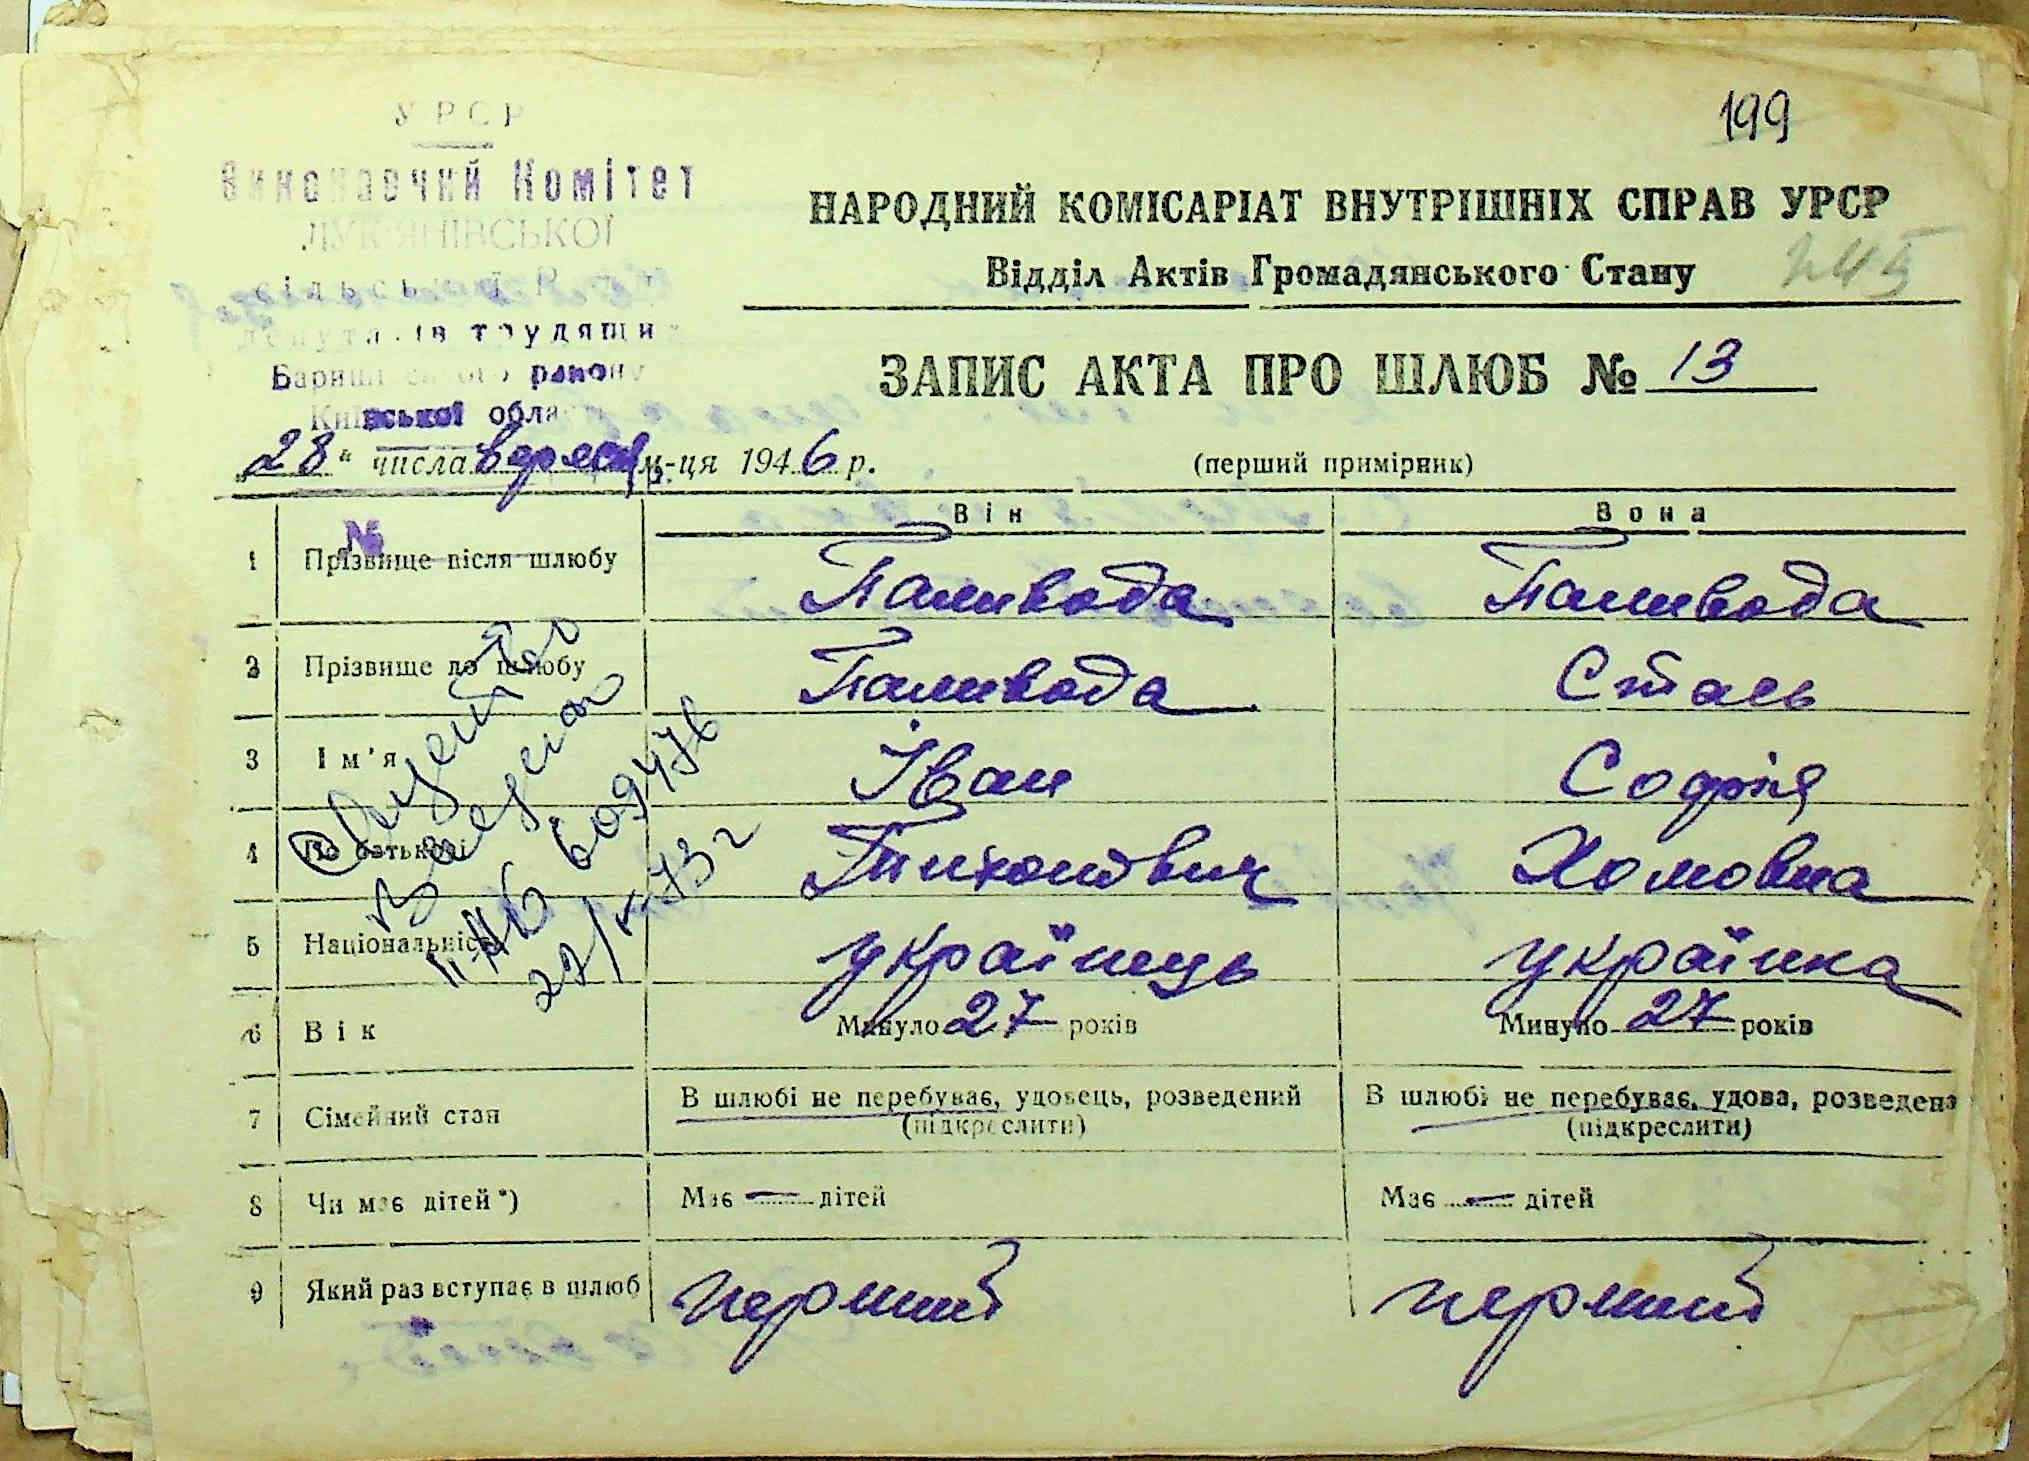 199
УРСР
Виконавчий Комітет
ЛУК'ЯНІВСЬКОЇ
сільської
депутатів трудящих
району
Київської обла
НАРОДНИЙ КОМІСАРІАТ ВНУТРІШНІХ СПРАВ УРСР
Відділ Актів Громадянського Стану
ЗАПИС АКТА ПРО ШЛЮБ № 13
„28" числа вересня м-ця 1946 р.
(перший примірник)
№
Він Вона
1 Прізвище після шлюбу Паливода Паливода
2 Прізвище до шлюбу Паливода Стась
3 Ім'я Іван Софія
4 По батькові Тихонович Хомовна
5 Національність українець українка
6 Вік Минуло 27 років Минуло 27 років
7 Сімейний стан В шлюбі не перебуває, удовець, розведений В шлюбі не перебуває, удова, розведена
(підкреслити) (підкреслити)
8 Чи має дітей*) Має — дітей Має — дітей
9 Який раз вступає в шлюб перший перший
609476